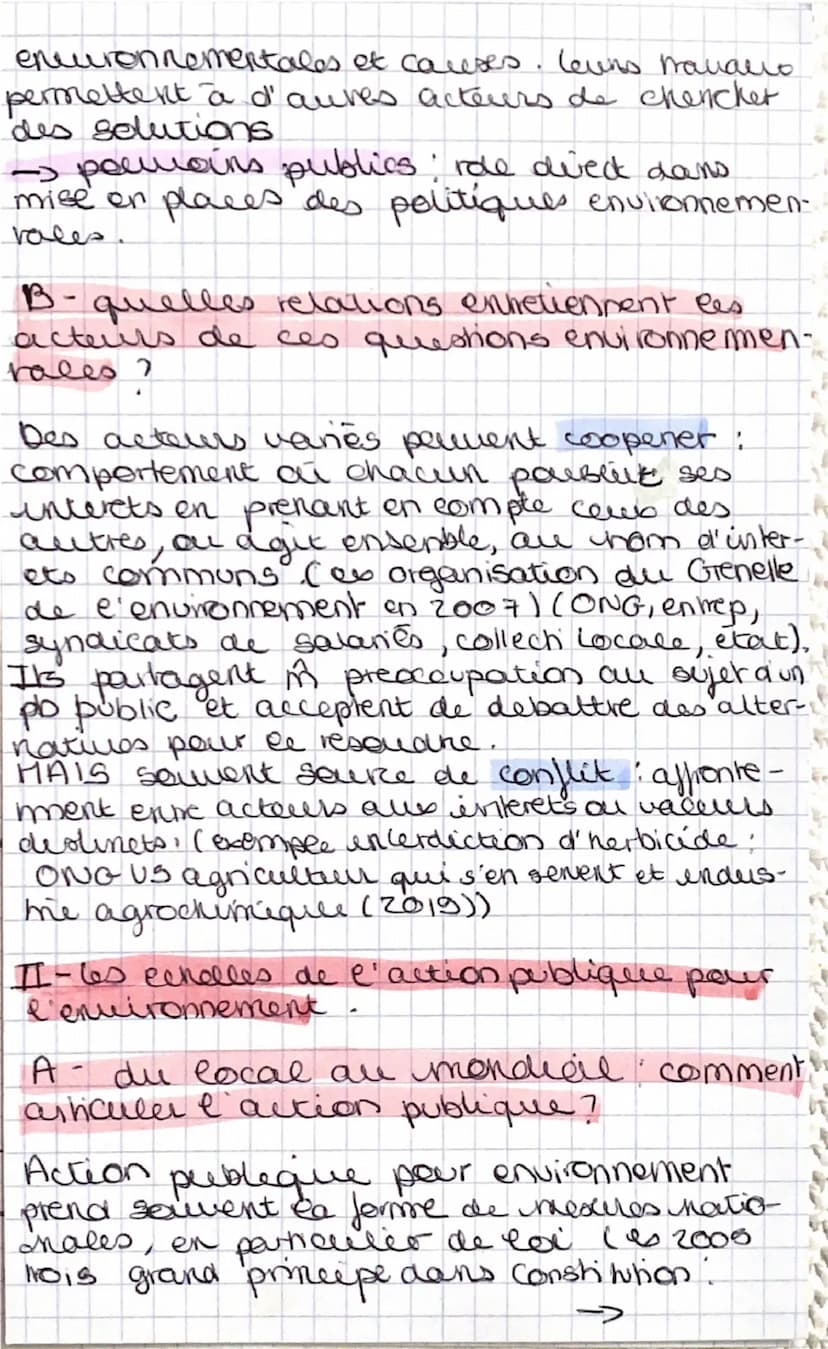 environnementales et causes. leurs travaux
permettent à d'autres acteurs de chercher
des solutions
→ pouvoirs publics : role direct dans
mise en places des politiques environnemen-
tales.
B - quelles relations entretiennent les
acteurs de ces questions environnemen-
tales ?
Des acteurs variés peuvent coopérer :
comportement où chacun poursuit ses
interets en prenant en compte ceux des
autres, ou agit ensemble, au nom d'inter-
ets communs (ex organisation du Grenelle
de l'environnement en 2007) (ONG, entrep,
syndicats de salariés, collecti locale, état).
Ils partagent m̂ preoccupation au sujet d'un
pb public et acceptent de debattre des alter-
natives pour le resoudre.
MAIS souvent source de conflit : affronte-
ment entre acteurs aux interets ou valeurs
distincts. (exemple interdiction d'herbicide :
ONG VS agriculteur qui s'en servent et indus-
trie agrochimique (2019))
II - les echelles de l'action publique pour
l'environnement.
A - du local au mondial : comment
articuler l'action publique ?
Action publique pour environnement
prend souvent la forme de mesures natio-
nales, en particulier de loi (ex 2005
trois grand principe dans Constitution :
→